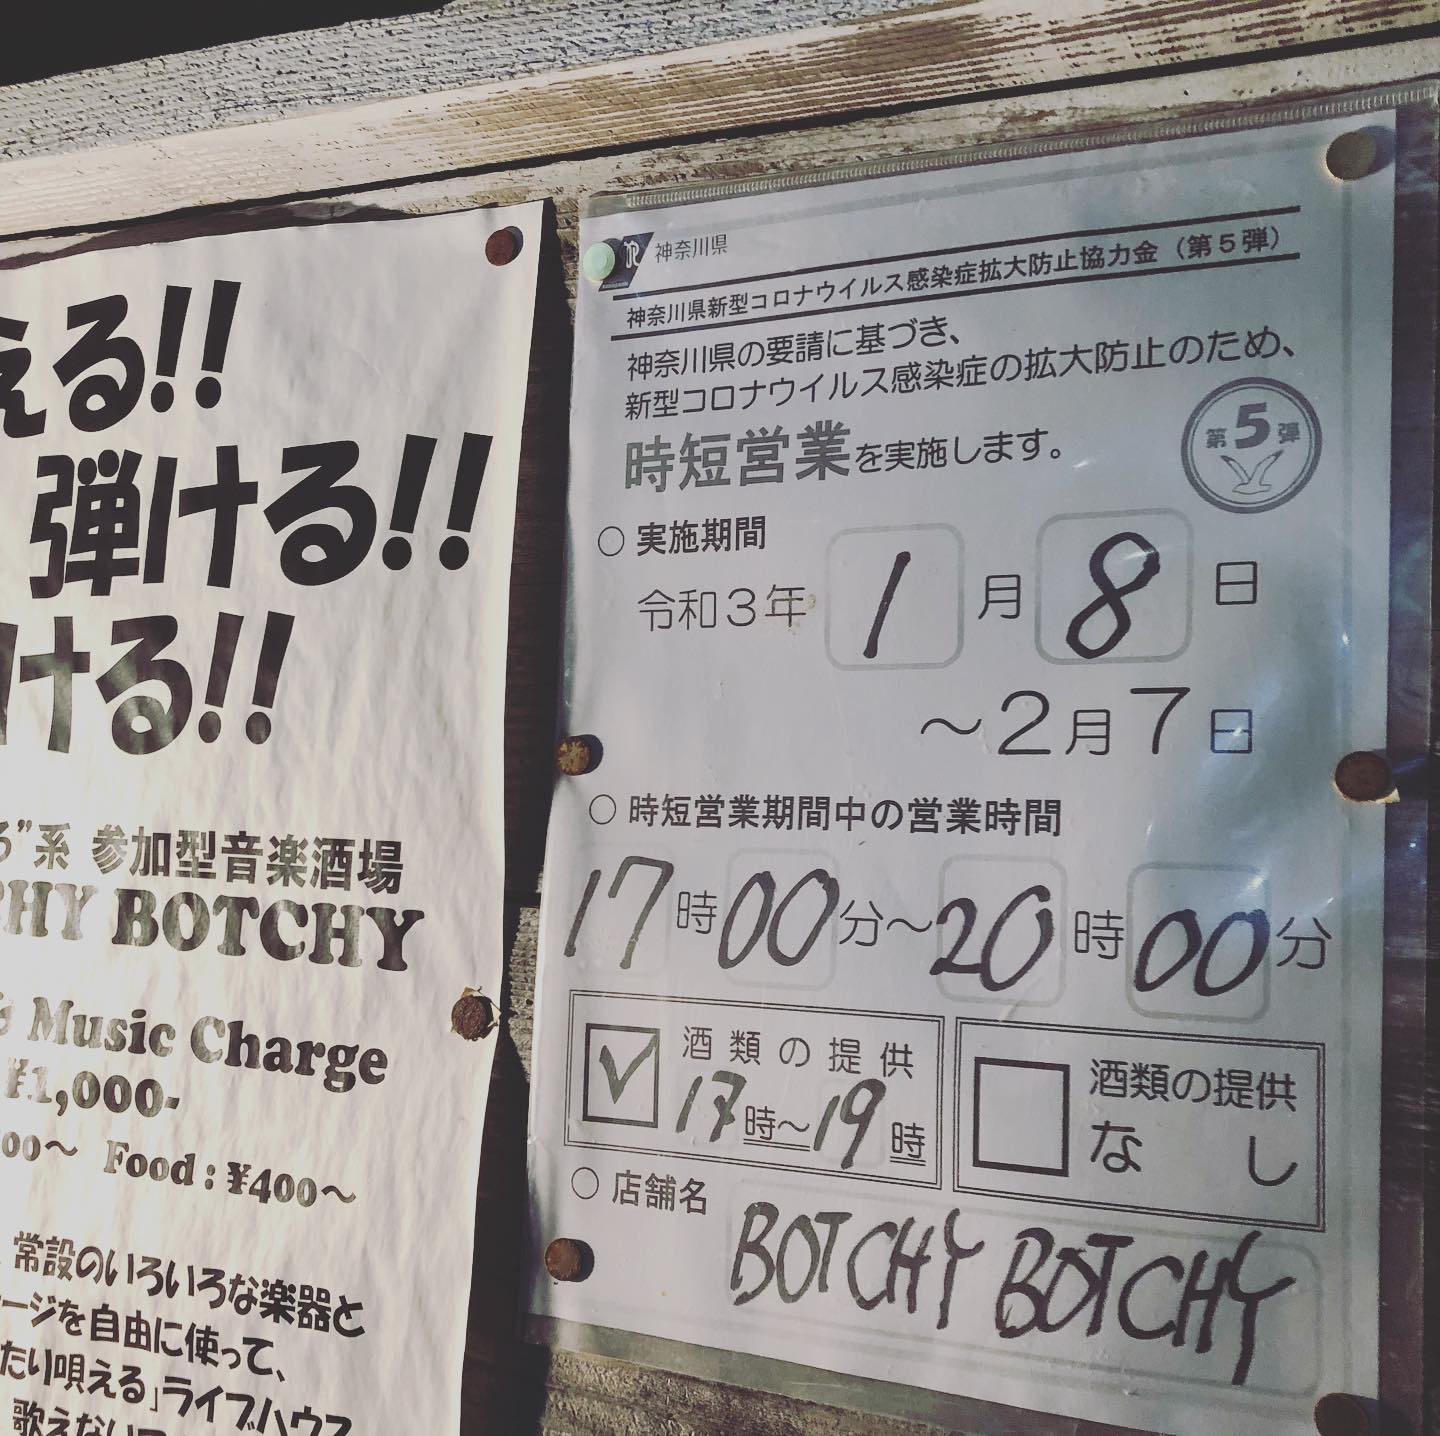 える!!
弾ける!!
ける!!
系 参加型音楽酒場
CHY BOTCHY
Music Charge
¥1,000-
00〜 Food : ¥400〜
常設のいろいろな楽器と
ージを自由に使って、
たり唄える」ライブハウス
歌えない
神奈川県
神奈川県新型コロナウイルス感染症拡大防止協力金（第５弾）
神奈川県の要請に基づき、
新型コロナウイルス感染症の拡大防止のため、
時短営業を実施します。
第5弾
○ 実施期間
令和３年 1 月 8 日
〜２月７日
○ 時短営業期間中の営業時間
17 時 00 分〜 20 時 00 分
✓ 酒類の提供
17 時〜 19 時
酒類の提供
なし
○ 店舗名
BOTCHY BOTCHY